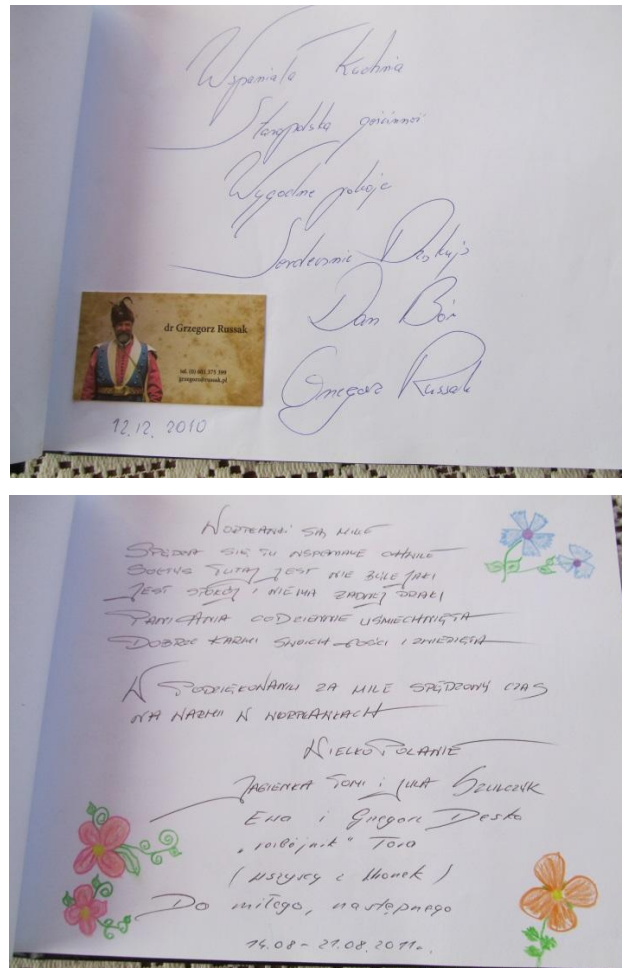 Wspaniała Kuchnia
Staropolska gościnność
Wygodne pokoje
Serdecznie Dziękuję
Darz Bór
Grzegorz Russak
dr Grzegorz Russak
12.12.2010
SĄ MIŁE
SPĘDZA SIĘ TU WSPANIAŁE CHWILE
TUTAJ JEST NIE BYLE JAKI
JEST SPOKÓJ I NIE MA ŻADNEJ DRAKI
PANI ANIA CODZIENNIE UŚMIECHNIĘTA
DOBRZE KARMI SWOICH GOŚCI I ZWIERZĘTA
W PODZIĘKOWANIU ZA MILE SPĘDZONY CZAS
NA WARMII W
WIELKOPOLANIE
JAGIENKA TOMI i JULA SZULCZYK
Ewa i Grzegorz Deska
"rozbójnik" Tora
(wszyscy z)
Do miłego, następnego
14.08 – 21.08.2011r.